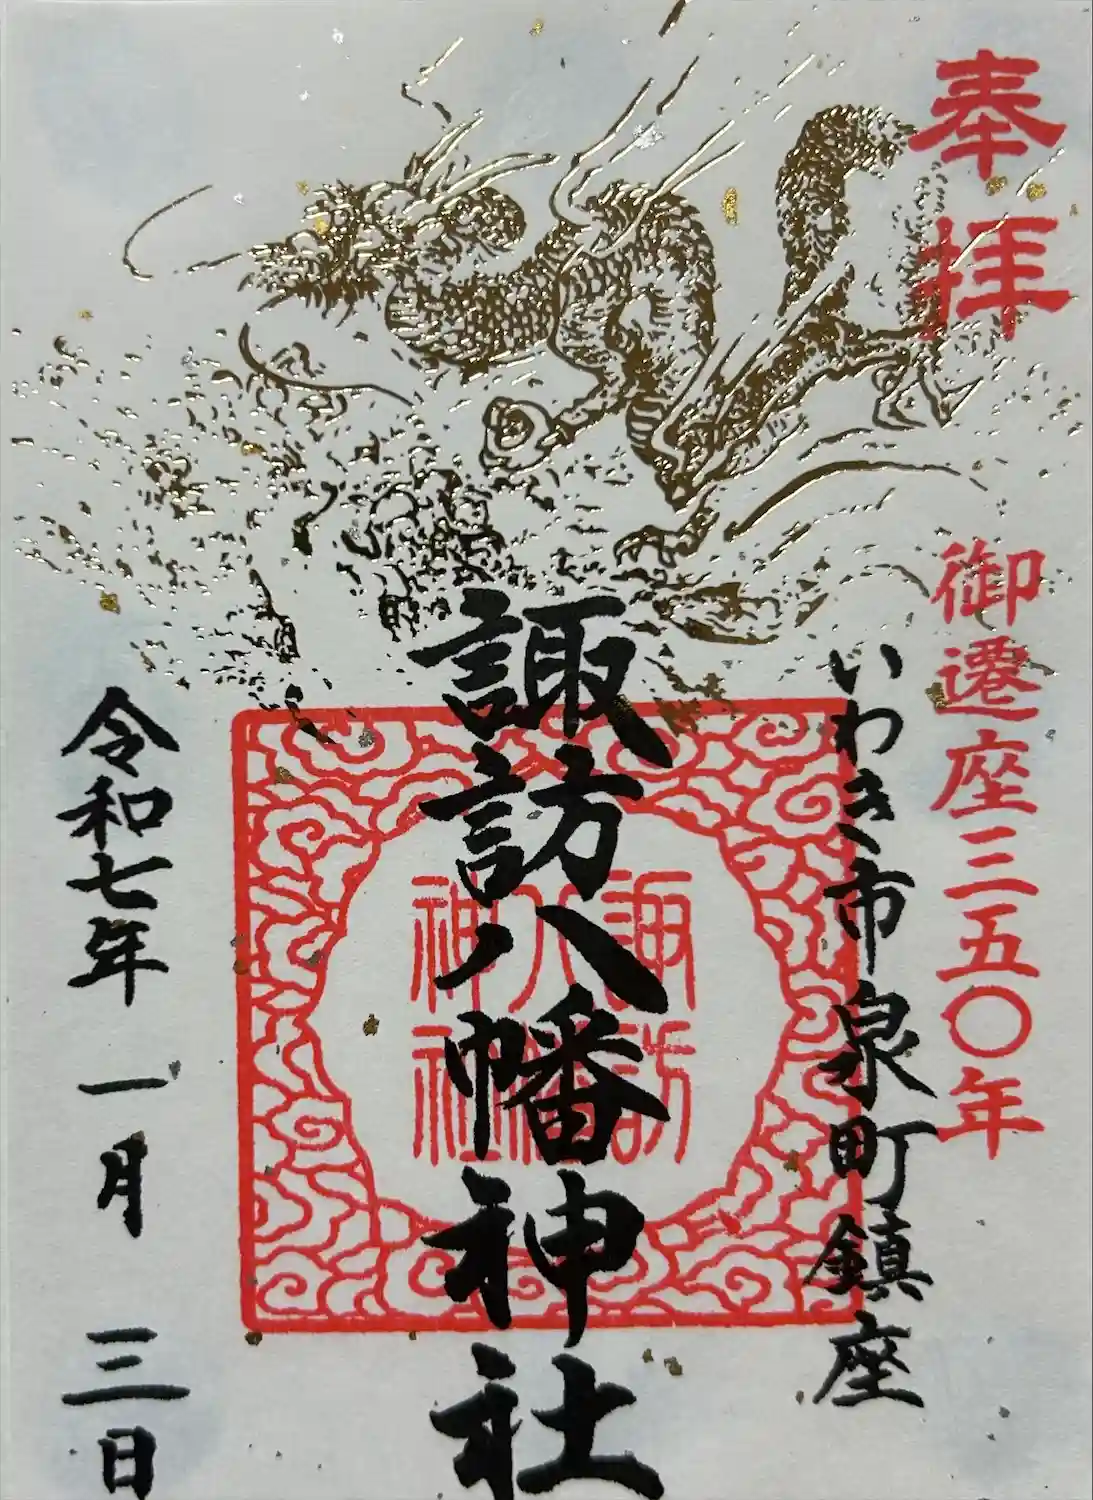 奉拝
御遷座三五〇年
いわき市泉町鎮座
諏訪八幡神社
諏訪
八幡
神社
令和七年一月三日